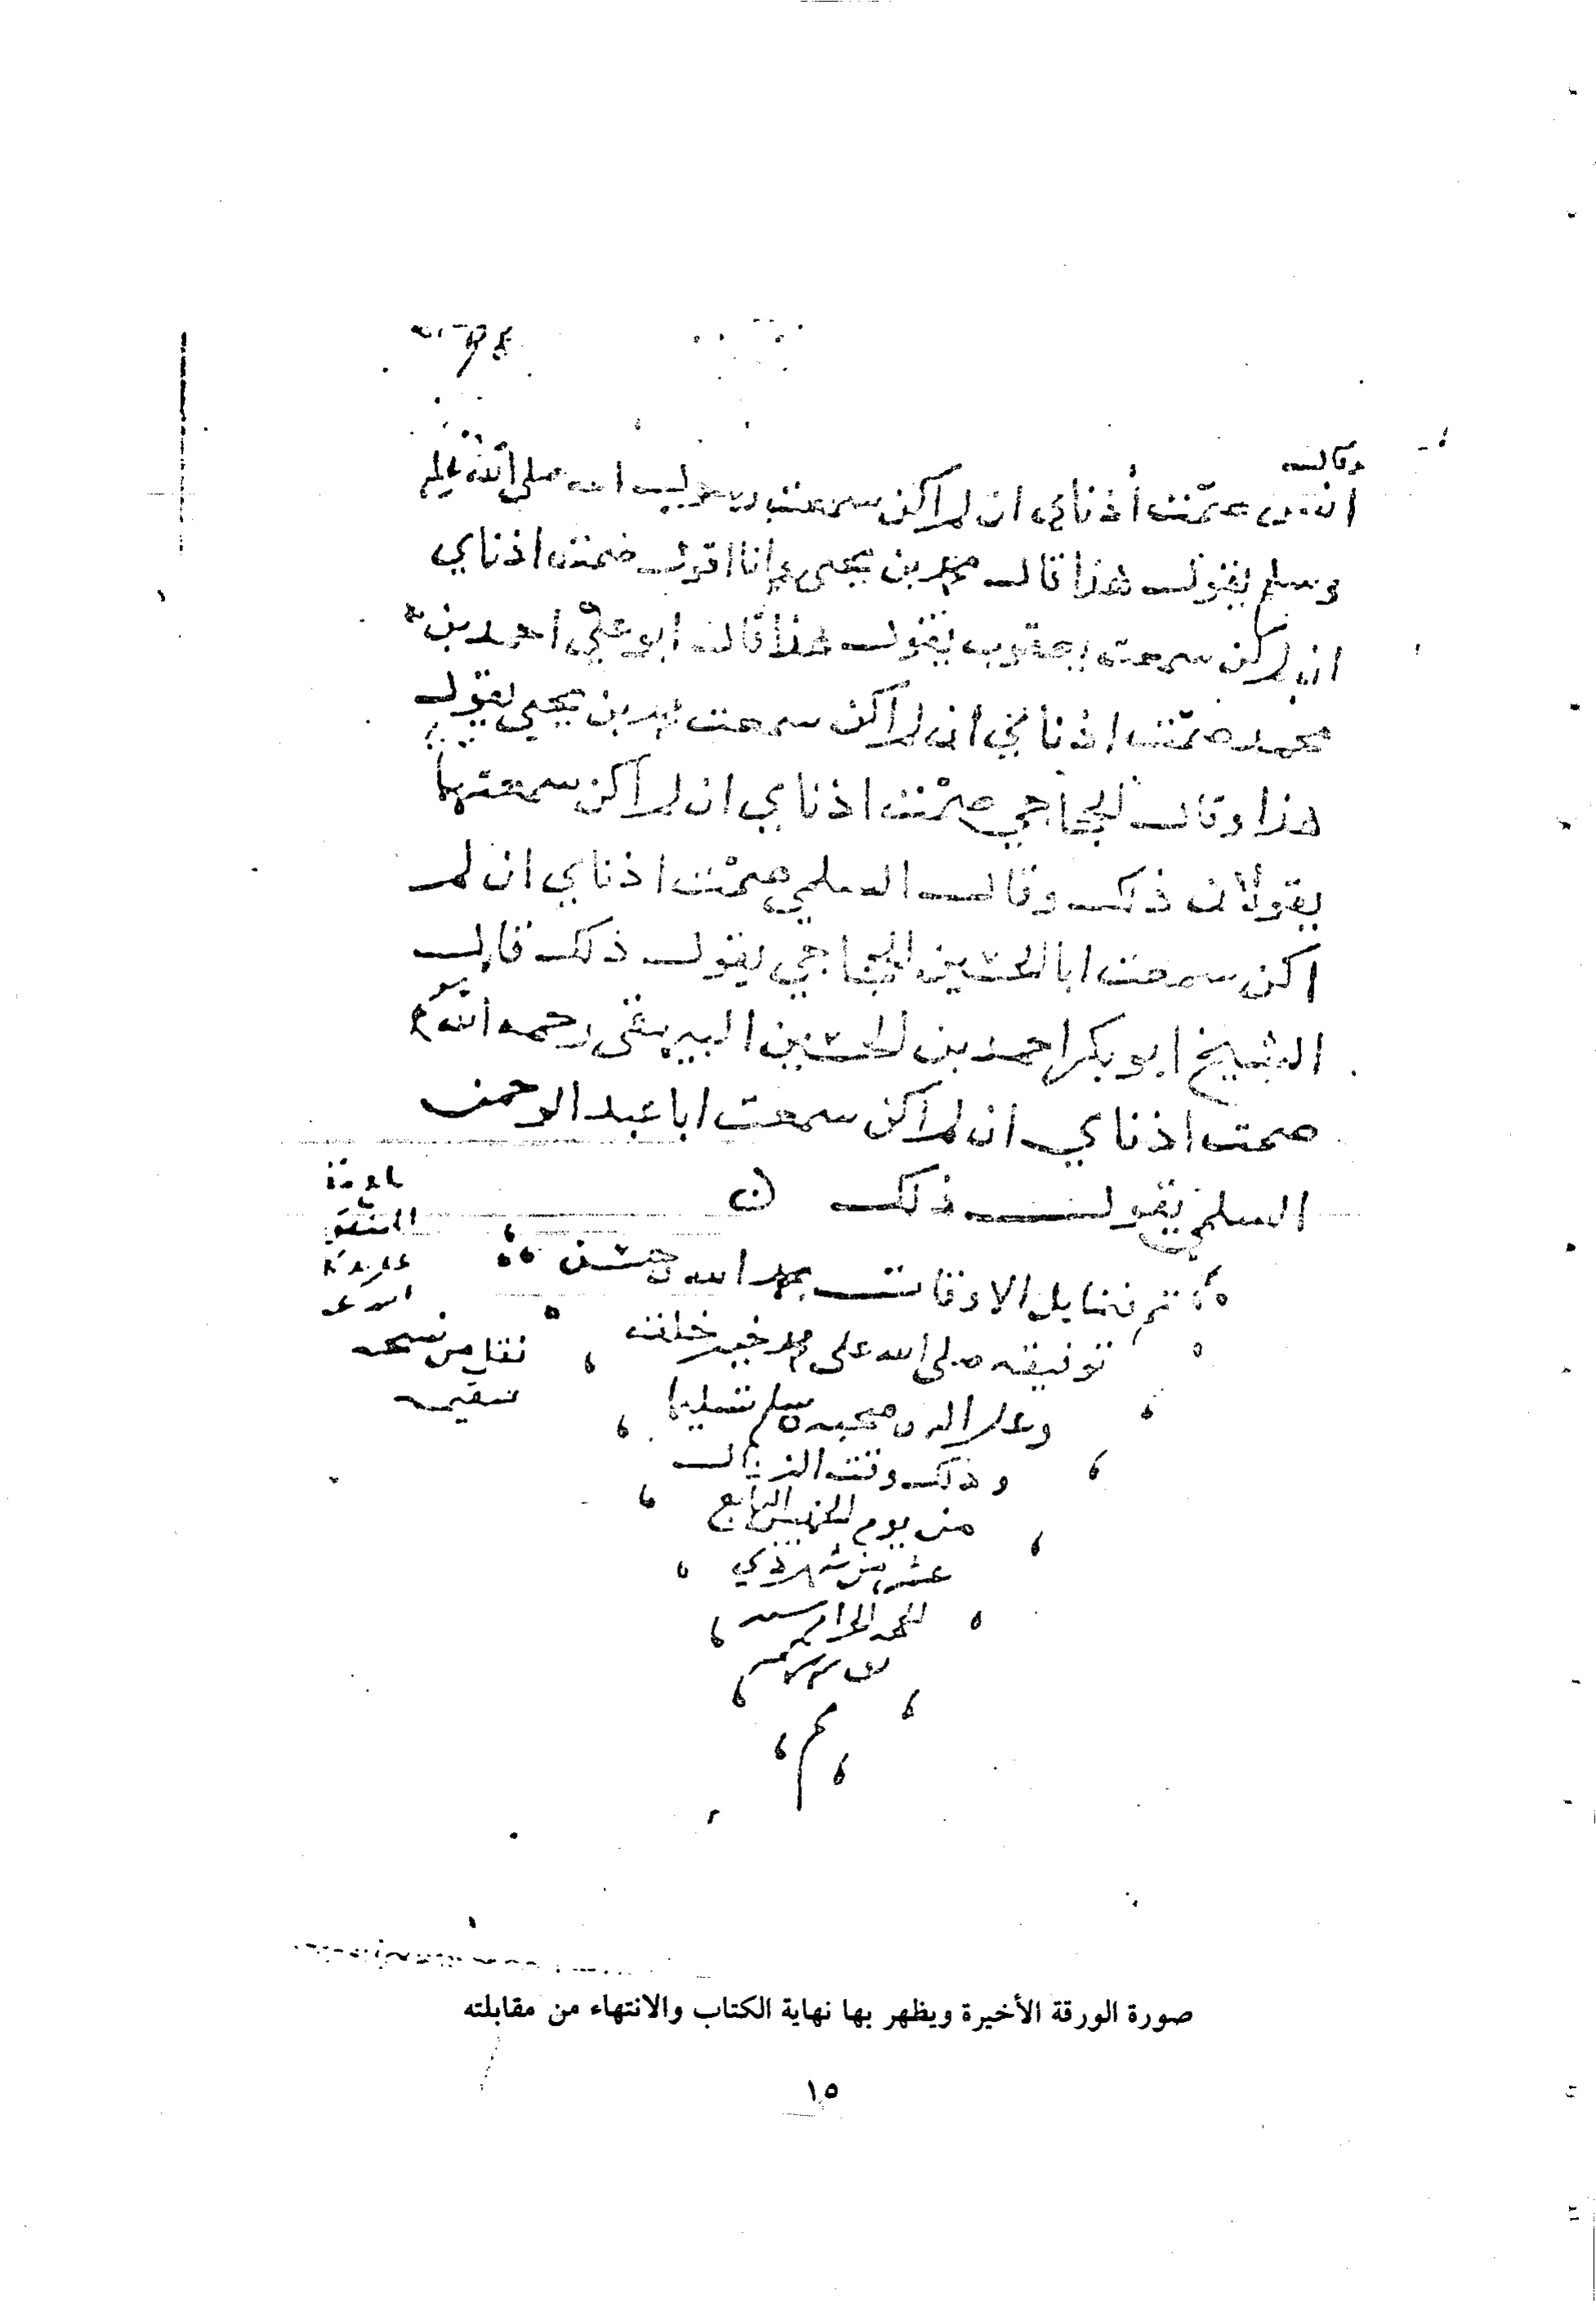 وقال
انس صمّت أذناي ان لم اكن سمعت رسول الله صلى الله عليه
وسلم يقول هذا قال محمد بن يحيى وانا اقول صمت اذناي
ان لم اكن سمعت يعقوب يقول هذا قال ابو علي احمد بن
محمد صمّت اذناي ان لم اكن سمعت محمد بن يحيى يقول
هذا وقال الحجاجي صمّت اذناي ان لم اكن سمعتهما
يقولان ذلك وقال السلمي صمّت اذناي ان لم
اكن سمعت ابا الحسين الحجاجي يقول ذلك قال
الشيخ ابو بكر احمد بن الحسين البيهقي رحمه الله
صمت اذناي ان لم اكن سمعت ابا عبد الرحمن
السلمي يقول ذلك
تم فضايل الاوقات بحمد الله وحسن
توفيقه صلى الله على محمد خير خلقه
وعلى اله وصحبه وسلم تسليما
وذلك وقت الزوال
من يوم الخميس الرابع
عشر من شهر ذي
الحجه الحرام سنه
نقل من نسخه
سقيمه
صورة الورقة الأخيرة ويظهر بها نهاية الكتاب والانتهاء من مقابلته
١٥